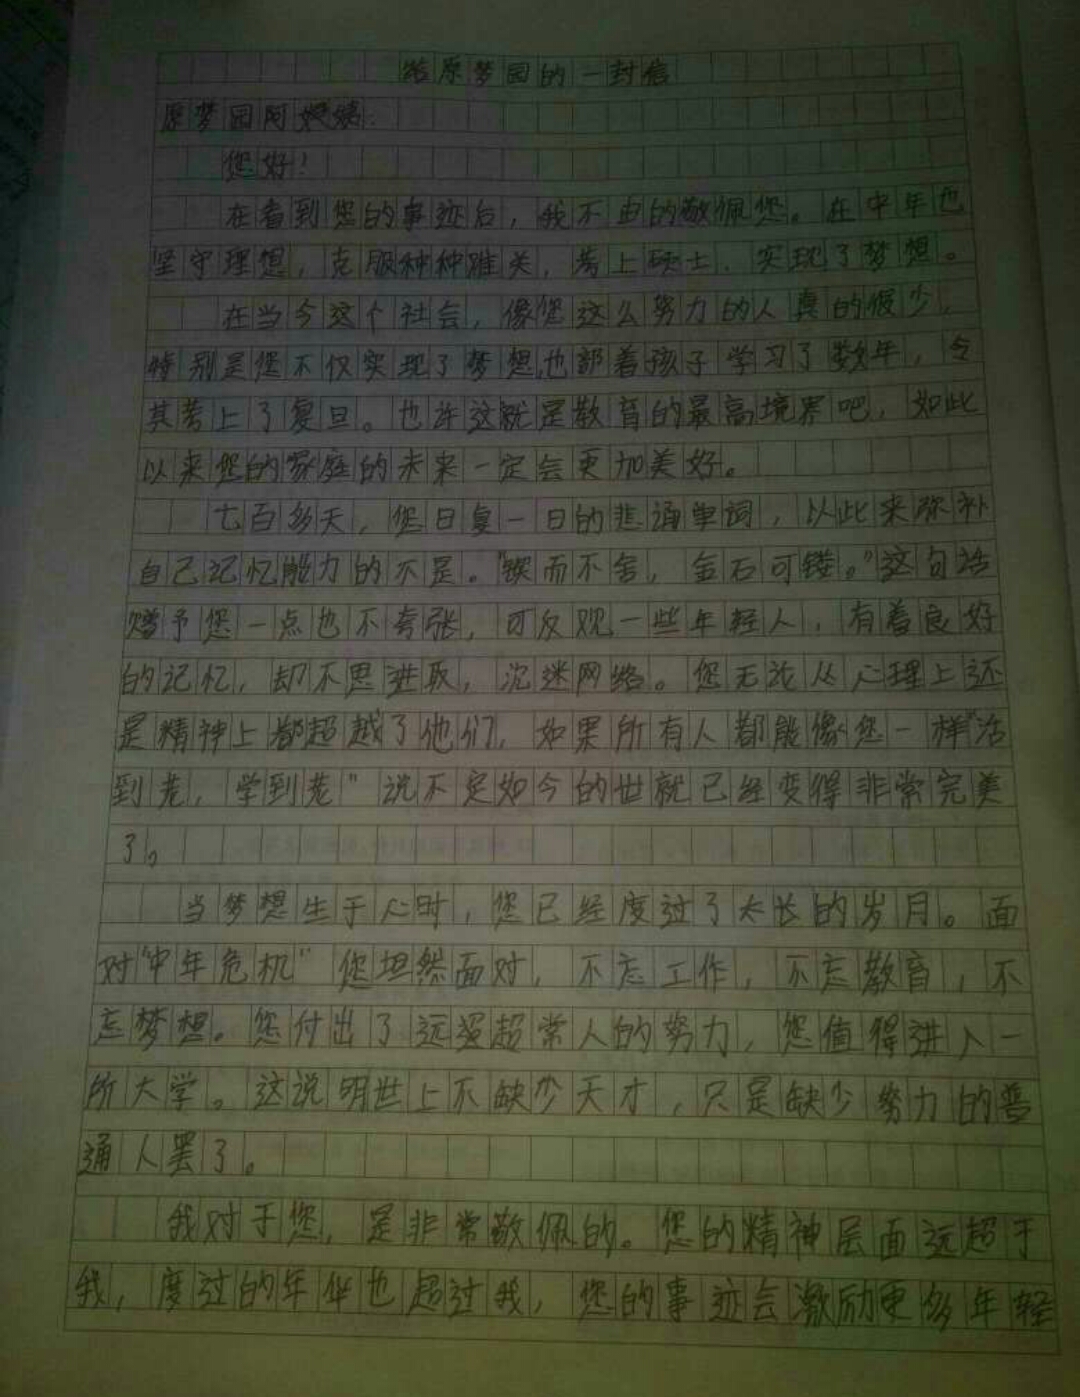 给原梦园的一封信
原梦园阿姨:
您好!
在看到您的事迹后,我不由的敬佩您。在中年也
坚守理想,克服种种难关,考上硕士,实现了梦想。
在当今这个社会,像您这么努力的人真的很少,
特别是您不仅实现了梦想,也部着孩子学习了数年,令
其考上了复旦。也许这就是教育的最高境界吧,如此
以来您的家庭的未来一定会更加美好。
七百多天,您日复一日的背诵单词,以此来弥补
自己记忆能力的不足。“锲而不舍,金石可镂。”这句话
赠予您一点也不夸张,可反观一些年轻人,有着良好
的记忆,却不思进取,沉迷网络。您无论从心理上还
是精神上都超越了他们,如果所有人都能像您一样“活
到老,学到老”说不定如今的世就已经变得非常完美
了。
当梦想生于心时,您已经度过了太长的岁月。面
对“中年危机”您坦然面对,不忘工作,不忘教育,不
忘梦想。您付出了远超常人的努力,您值得进入一
所大学。这说明世上不缺少天才,只是缺少努力的普
通人罢了。
我对于您,是非常敬佩的。您的精神层面远超于
我,度过的年华也超过我,您的事迹会激励更多年轻